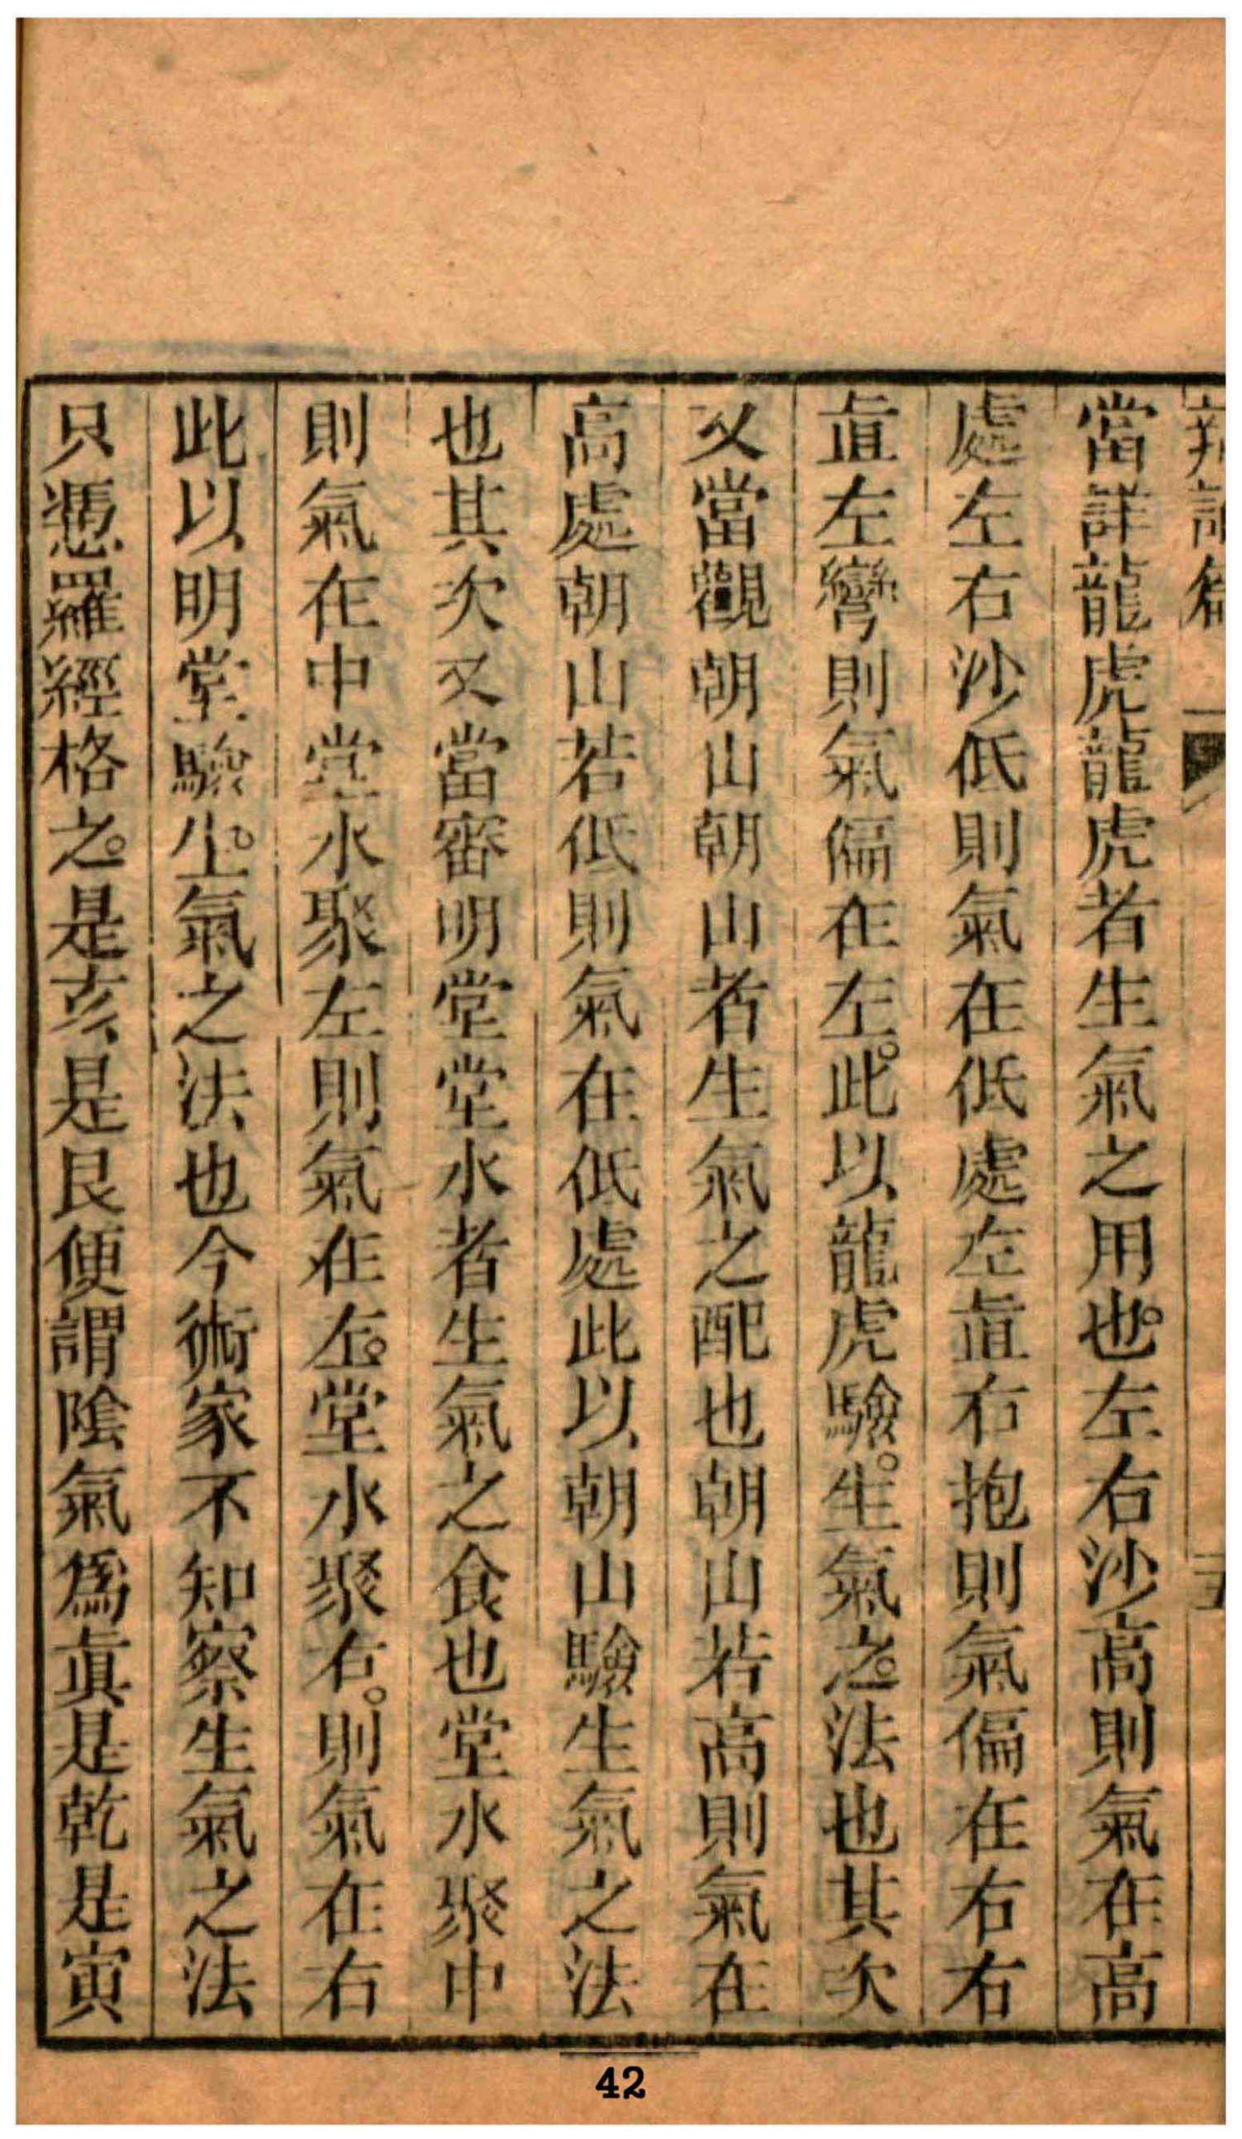 當詳龍虎龍虎者生氣之用也。左右沙高則氣在高
處左右沙低則氣在低處左直右抱則氣偏在右右
直左彎則氣偏在左。此以龍虎驗。生氣之。法也其次
又當觀朝山朝山者生氣之配也朝山若高則氣在
高處朝山若低則氣在低處此以朝山驗生氣之法
也其次又當審明堂堂水者生氣之食也堂水聚中
則氣在中堂水聚左則氣在左。堂水聚右。則氣在右
此以明堂驗生。氣之法也今術家不知察生氣之法
只憑羅經格之。是亥是艮便謂陰氣爲眞是乾是寅
42